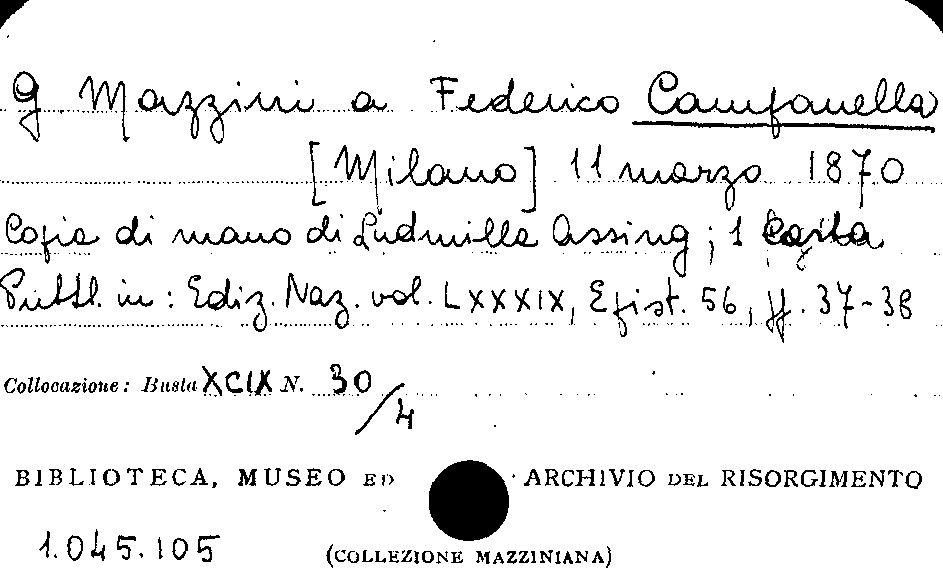 G. Mazzini a Federico Campanella
[Milano] 11 marzo 1870
Copia di mano di Ludmilla Assing; 1 carta
Pubbl. in: Ediz. Naz. vol. LXXXIX, Epist. 56, pp. 37-38
Collocazione: Busta XCIX N. 30/4
BIBLIOTECA, MUSEO ED ARCHIVIO DEL RISORGIMENTO
1.045.105 (COLLEZIONE MAZZINIANA)